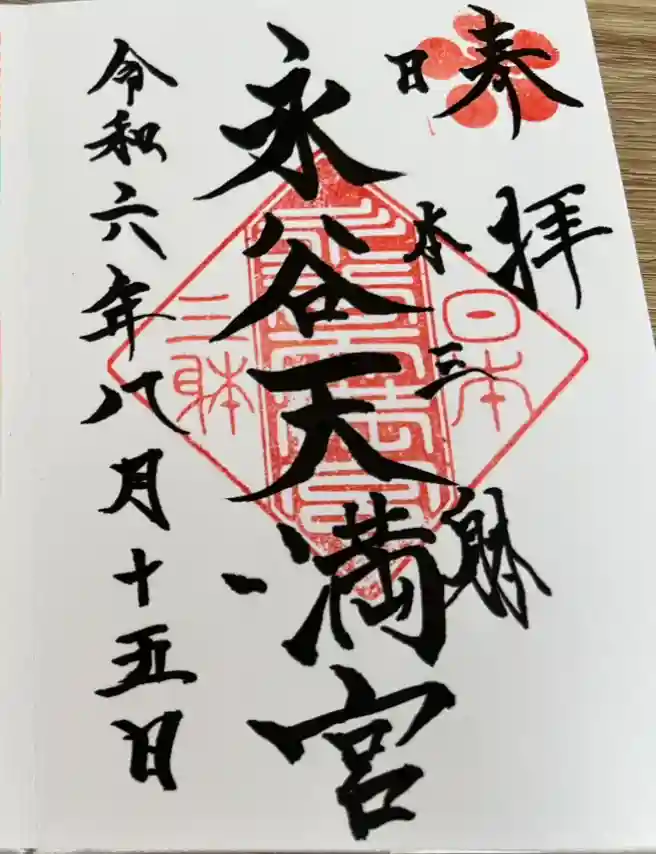 奉拝
日本三躰
永谷天満宮
日本
三躰
永谷天満宮
令和六年八月十五日